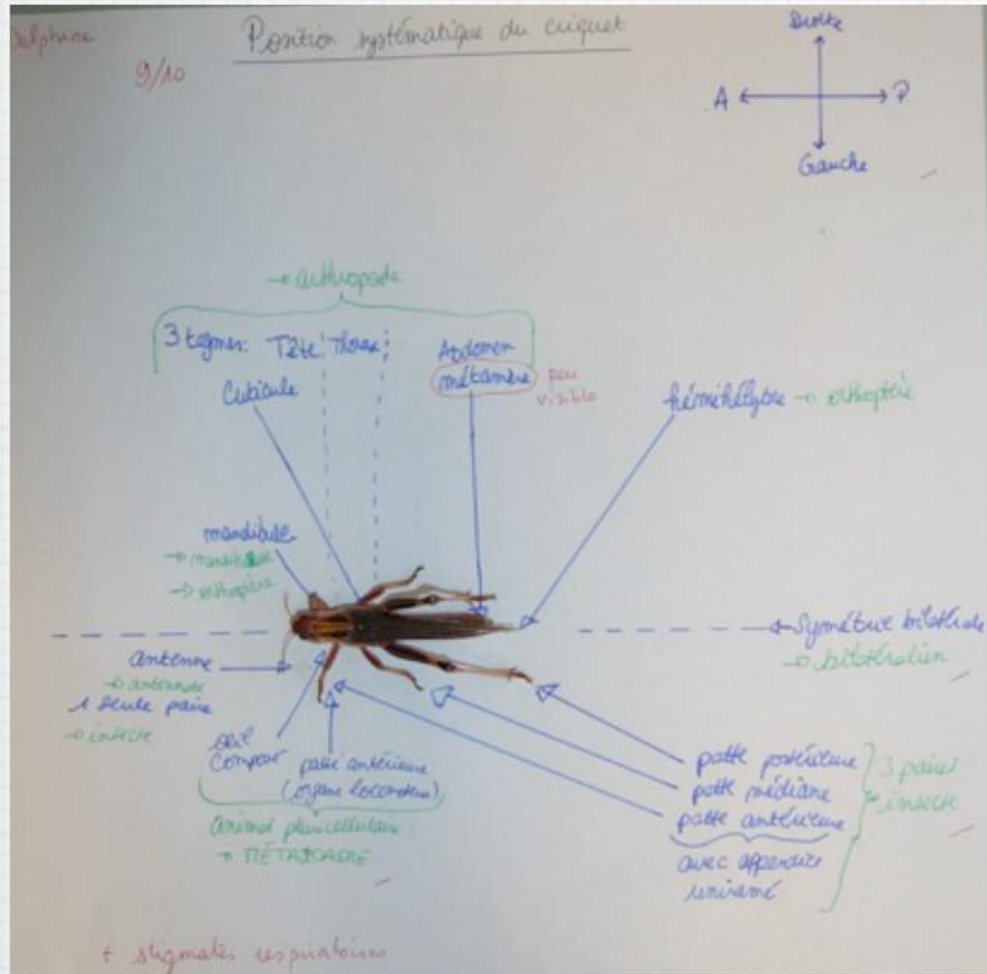 Delphine
Position systématique du criquet
9/10
Droite
A
P
Gauche
→ arthropode
3 tagmes: Tête Thorax
Abdomen
métamère
peu
visible
Cuticule
hémihélytre → orthoptère
mandibule
→ orthoptère
Symétrie bilatérale
→ bilatérien
antenne
→ antennate
1 seule paire
→ insecte
œil
composé
patte antérieure
(organe locomoteur)
Animal pluricellulaire
→ MÉTAZOAIRE
patte postérieure
patte médiane
patte antérieure
3 paires
insecte
avec appendice
uniramé
+ stigmates respiratoires